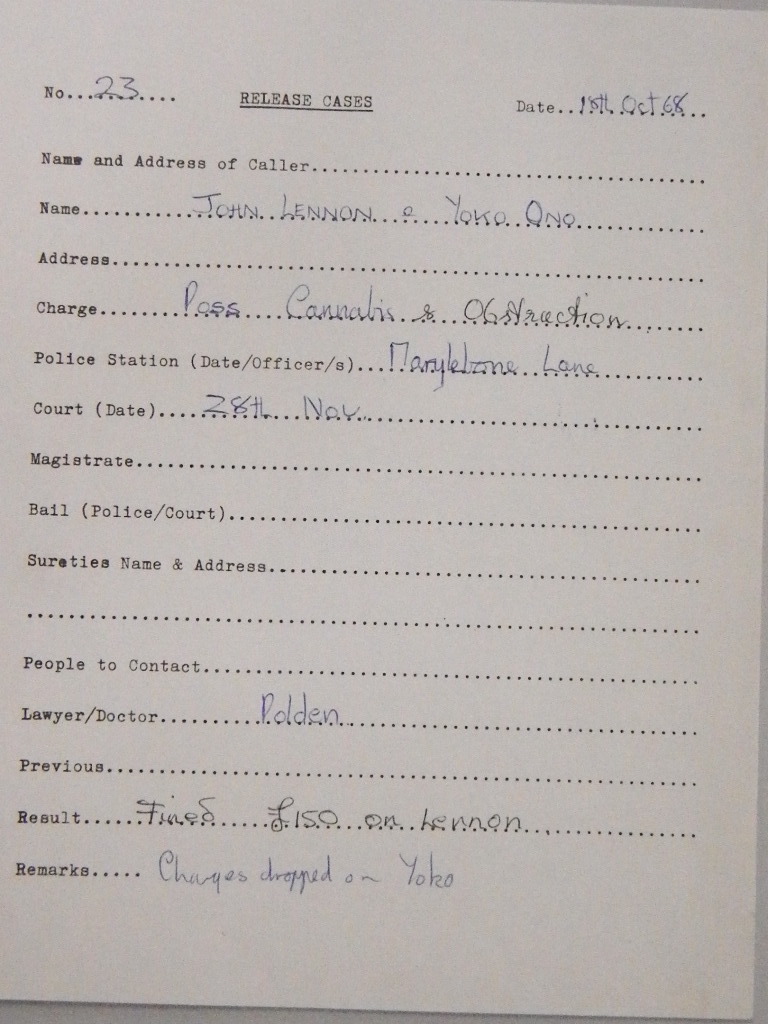 No...23.... RELEASE CASES Date..18th Oct 68..
Name and Address of Caller........................................
Name.........JOHN LENNON & YOKO ONO............
Address...........................................................
Charge........Poss Cannabis & Obstruction........
Police Station (Date/Officer/s)...Marylebone Lane..........
Court (Date)....28th Nov..............................
Magistrate........................................................
Bail (Police/Court)...............................................
Sureties Name & Address...........................................
..................................................................
People to Contact.................................................
Lawyer/Doctor.........Polden..............................
Previous..........................................................
Result......Fined £150 on Lennon..............
Remarks..... Charges dropped on Yoko